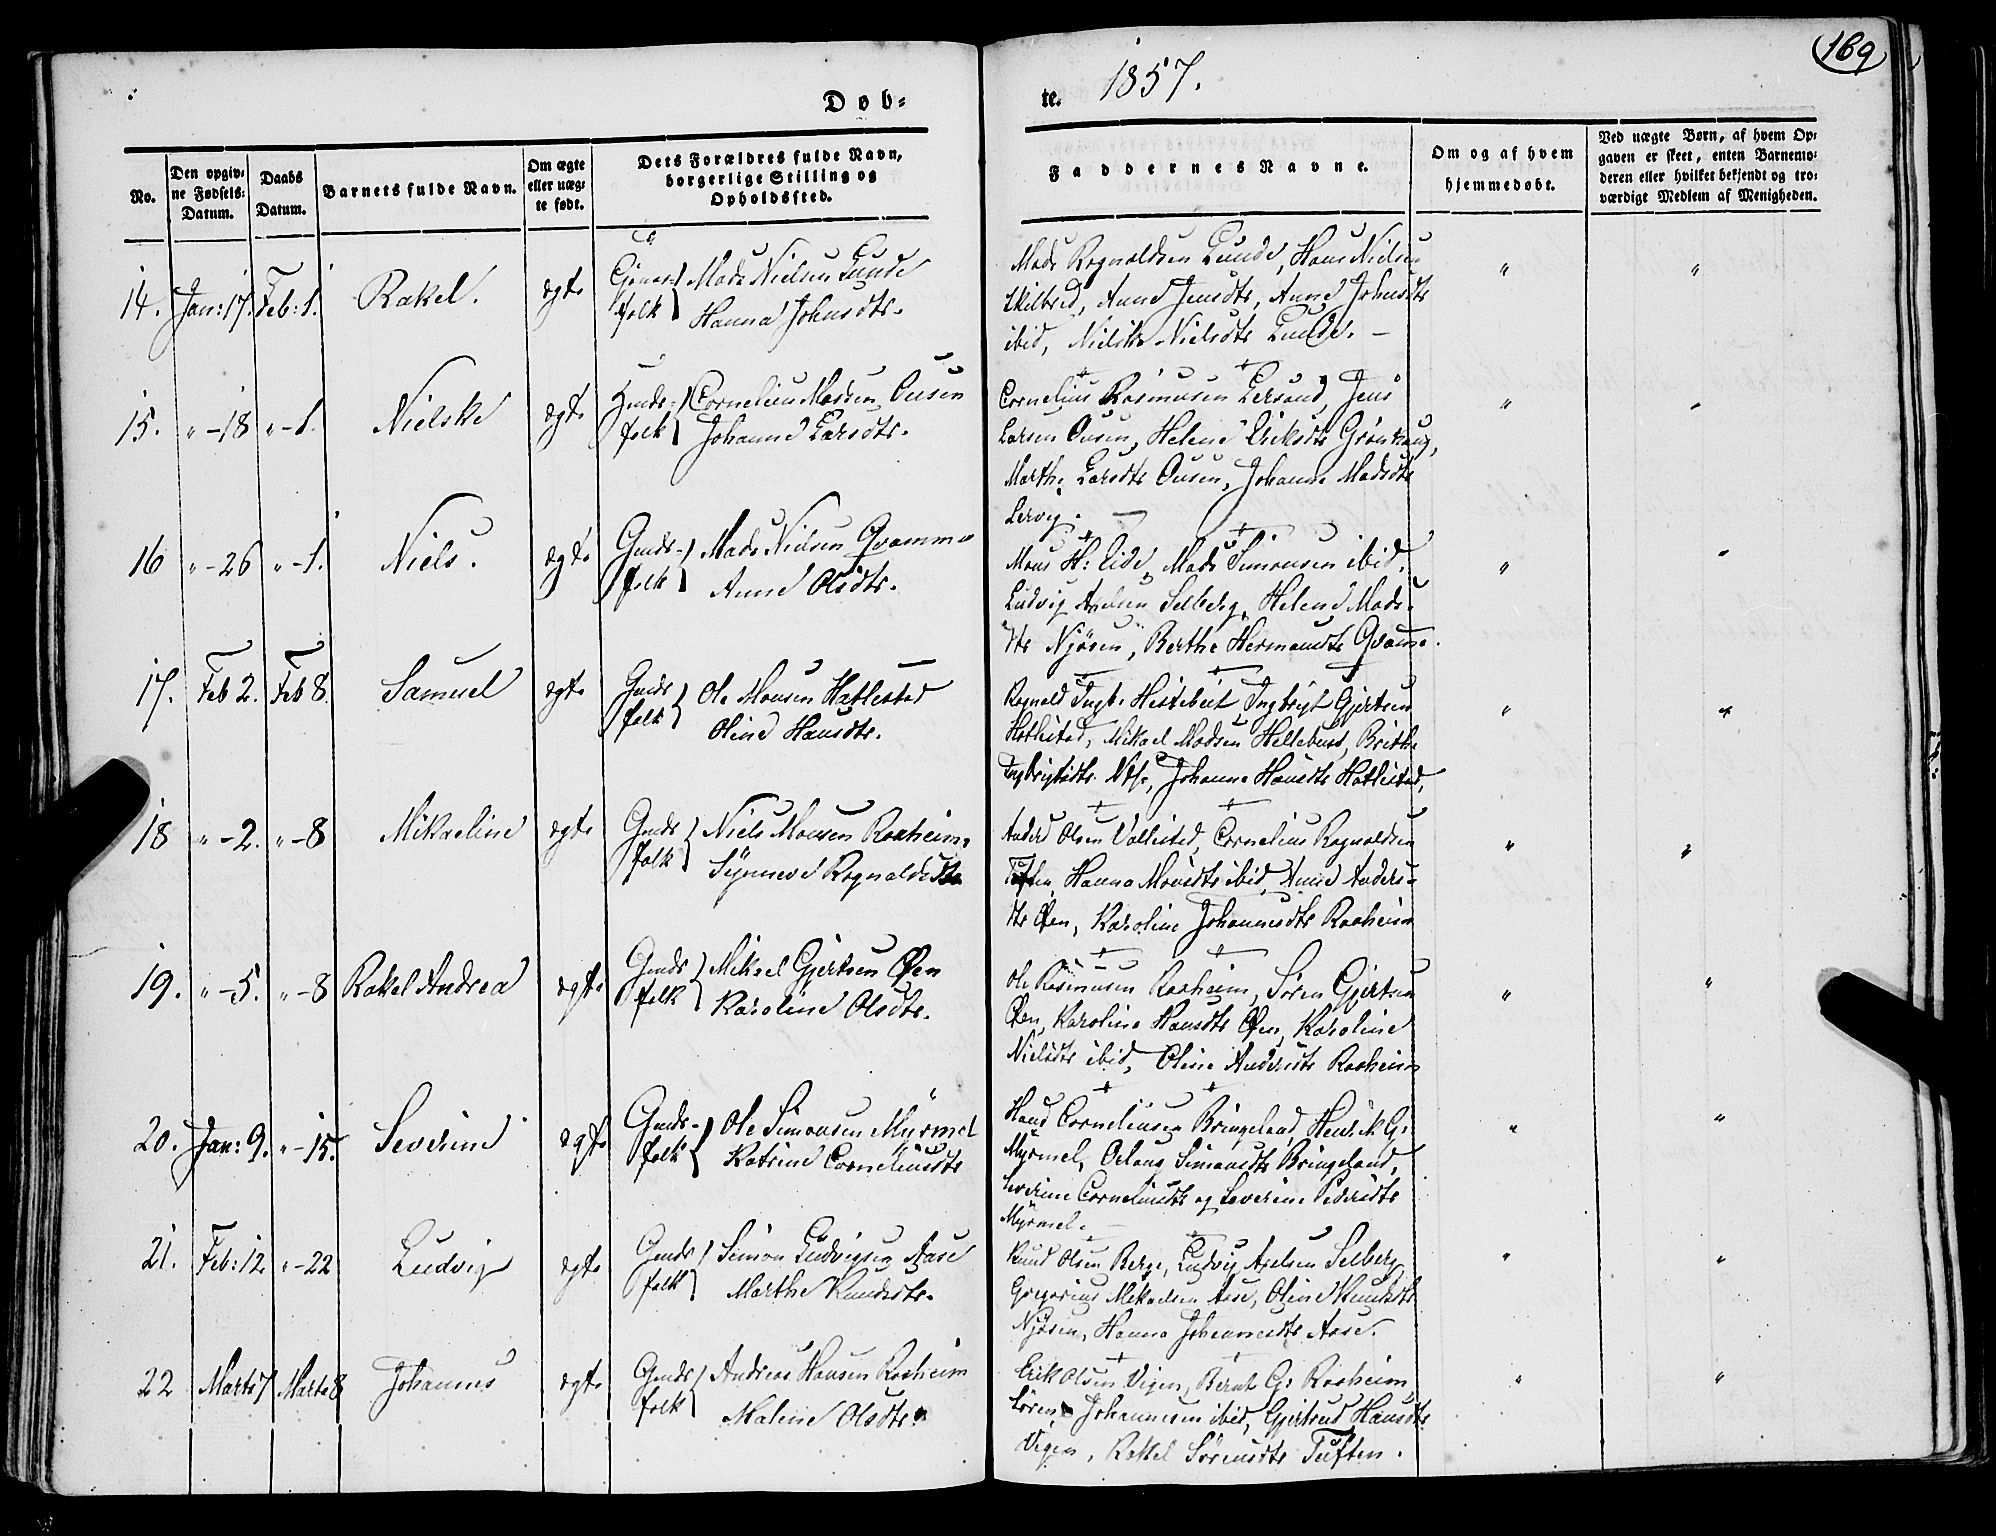 169
Døb-
te. 1857.
No.
Den opgiv-
ne Fødsels-
Datum.
Daabs
Datum.
Barnets fulde Navn.
Om ægte
eller uæg-
te født.
Dets Forældres fulde Navn,
borgerlige Stilling og
Opholdssted.
Faddernes Navne.
Om og af hvem
hjemmedøbt.
Ved uægte Børn, af hvem Op-
gaven er skeet, enten Barnemo-
deren eller hvilket bekjendt og tro-
værdigt Medlem af Menigheden.
14. Jan: 17. Feb: 1. Rakel. egte
folk Mads Nielsen Lunde
Hanna Johnsdtr.
Mads Rognaldsen Lunde, Hans Nielsen
Anne Jensdtr, Anne Johnsdtr
ibid, Nielske Nielsdtr Lunde. —
" "
15. " -18 " -1. Nielske egte
folk Cornelius Madsen Ousen
Johanne Larsdtr.
Cornelius Rasmusen Jens
Larsen Ousen, Helene Eriksdtr
Marthe Larsdtr Ousen, Johanne Madsdtr
Lervig. —
" "
16 " -26 " -1. Niels. egte
Gmds-
folk Mads Nielsen Qvamme
Anne Olsdtr.
Mons H: Eide, Mads Simonsen ibid,
Ludvig Axelsen Selberg, Helene Mads-
dtr Njøsen, Berthe Hermansdtr Qvame.
" "
17. Feb 2. Feb 8. Samuel egte
Gmds
folk Ole Monsen Hatlestad
Oline Hansdtr.
Rognald Ingbrigt Gjertsen
Hatlestad, Mikael Madsen Hellebust, Brithe
Johanne Hansdtr Hatlestad,
" "
18 " -2. " -8 Mikaeline egte
Gmds
folk Niels Monsen Raaheim
Synneve Rognaldsdtr
Anders Olsen Vallestad, Cornelius Rognaldsen
Tuften, Hanna Monsdtr ibid, Anne Anders-
dtr Øen, Karoline Johannesdtr Raaheim
" "
19. " -5. " -8 Rakel Andrea egte
Gmds
folk Mikael Gjertsen Øen
Karoline Olsdtr.
Ole Rasmusen Raaheim, Søren Gjertsen
Øen, Karoline Hansdtr Øen, Karoline
Nielsdtr ibid, Oline Andersdtr Raaheim
" "
20. Jan: 9. " -15. Severine egte
Gmds-
folk Ole Simonsen Myrmel
Katrine Corneliusdtr
Corneliusen Bringeland, Henrik G:
Myrmel, Simonsdtr Bringeland,
Severine Corneliusdtr og Severine Pedersdtr
Myrmel. —
" "
21. Feb: 12 " -22 Ludvig egte
Gmds
folk Simon Ludvigsen Aase
Marthe Knudsdtr.
Knud Olsen Berge, Ludvig Axelsen Selberg
Gregorius Mikaelsen Aase, Oline
Njøsen, Hanna Johannesdtr Aase.
" "
22 Marts 7 Marts 8 Johannes egte
Gmds
folk Andreas Hansen Raaheim
Malene Olsdtr.
Erik Olsen Vigen, Bernt G: Raaheim
Søren Johannesen ibid, Gjertrud Hansdtr
Vigen, Rakel Sørensdtr Tuften.
" "